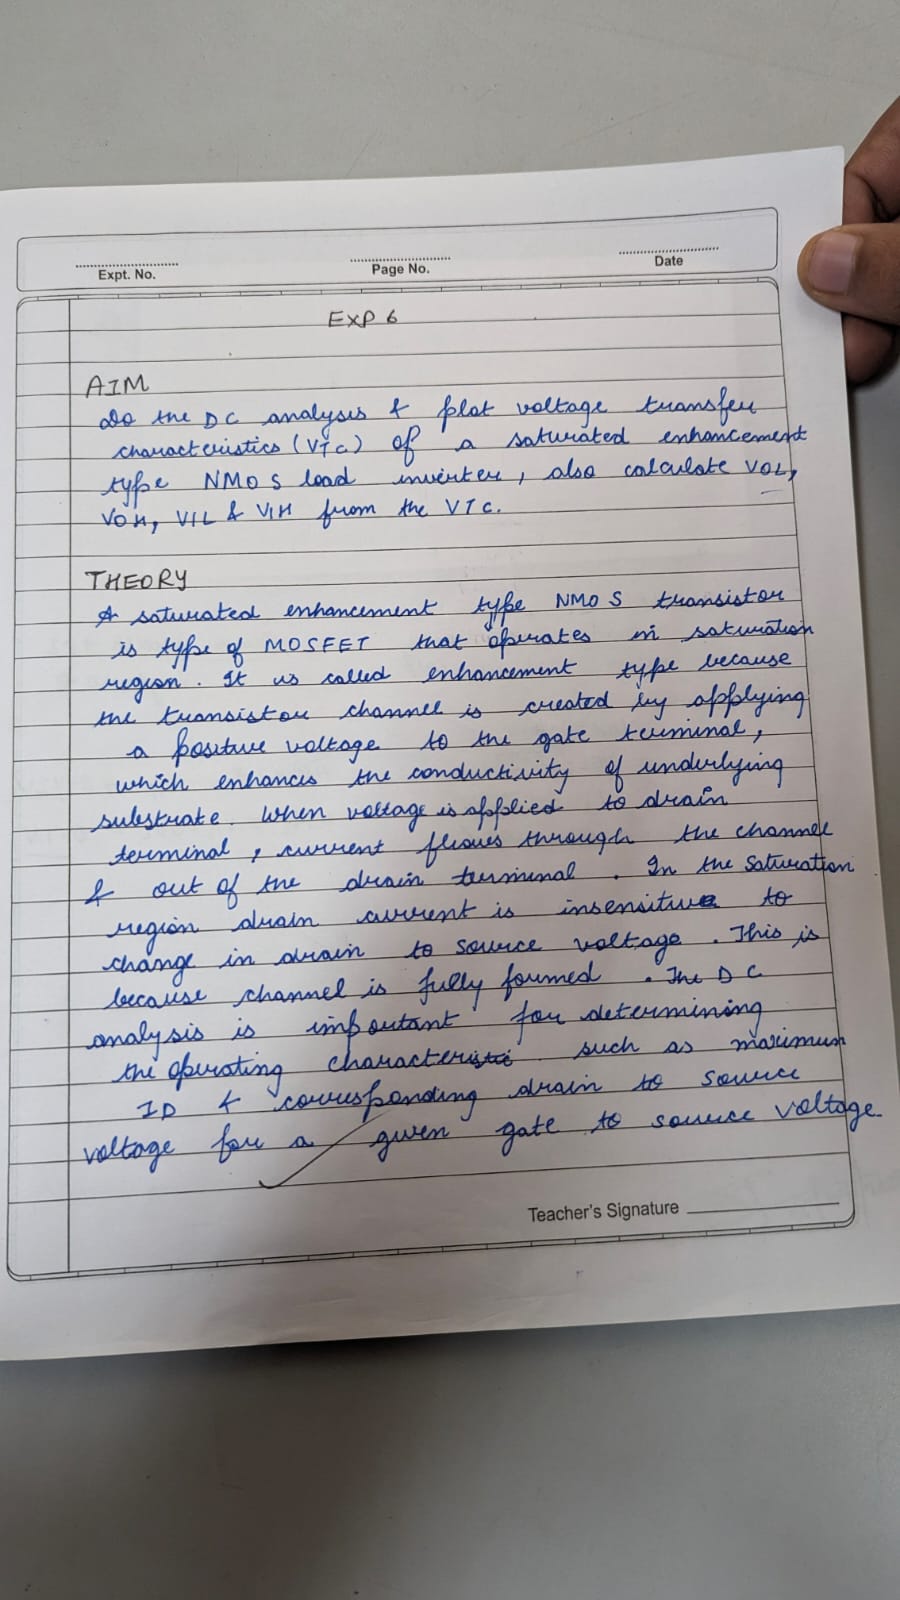 Expt. No.
Page No.
Date
EXP 6
AIM
Do the DC analysis & plot voltage transfer
characteristics (VTC) of a saturated enhancement
type NMOS load inverter, also calculate VOL,
VOH, VIL & VIH from the VTC.
THEORY
A saturated enhancement type NMOS transistor
is type of MOSFET that operates in saturation
region. It is called enhancement type because
the transistor channel is created by applying
a positive voltage to the gate terminal,
which enhances the conductivity of underlying
substrate. When voltage is applied to drain
terminal, current flows through the channel
& out of the drain terminal. In the saturation
region drain current is insensitive to
change in drain to source voltage. This is
because channel is fully formed. The DC
analysis is important for determining
the operating characteristic such as maximum
ID & corresponding drain to source
voltage for a given gate to source voltage
Teacher's Signature